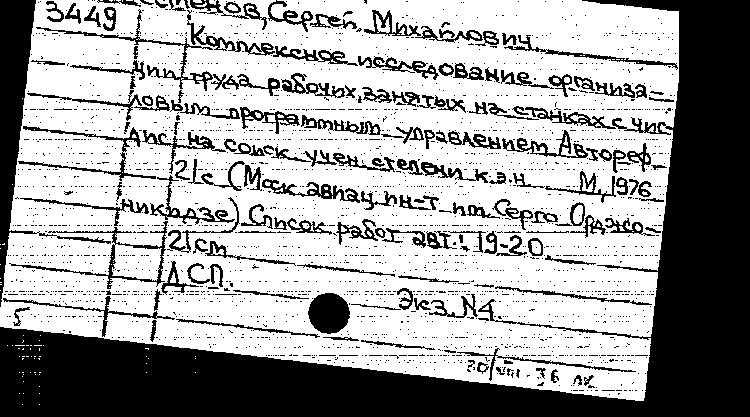 3449
Сергей Михайлович.
Комплексное исследование организа-
ции труда рабочих, занятых на станках с чис-
ловым программным управлением Автореф.
дис на соиск учен степени к.э.н. М, 1976
21с (Моск авиац ин-т им Серго Орджо-
никидзе) Список работ авт.: 19-20.
21см
ДСП.
Экз. N4.
5